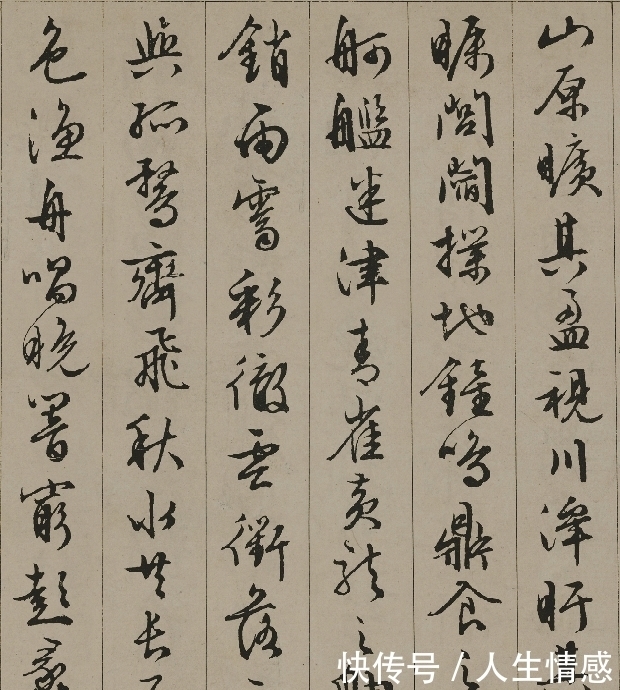 山原曠其盈視川澤盱
矚閭閻撲地鐘鳴鼎食之
舸艦迷津青雀黃龍之
銷雨霽彩徹雲衢落
與孤鶩齊飛秋水共長
色漁舟唱晚響窮彭蠡
快传号 / 人生情感